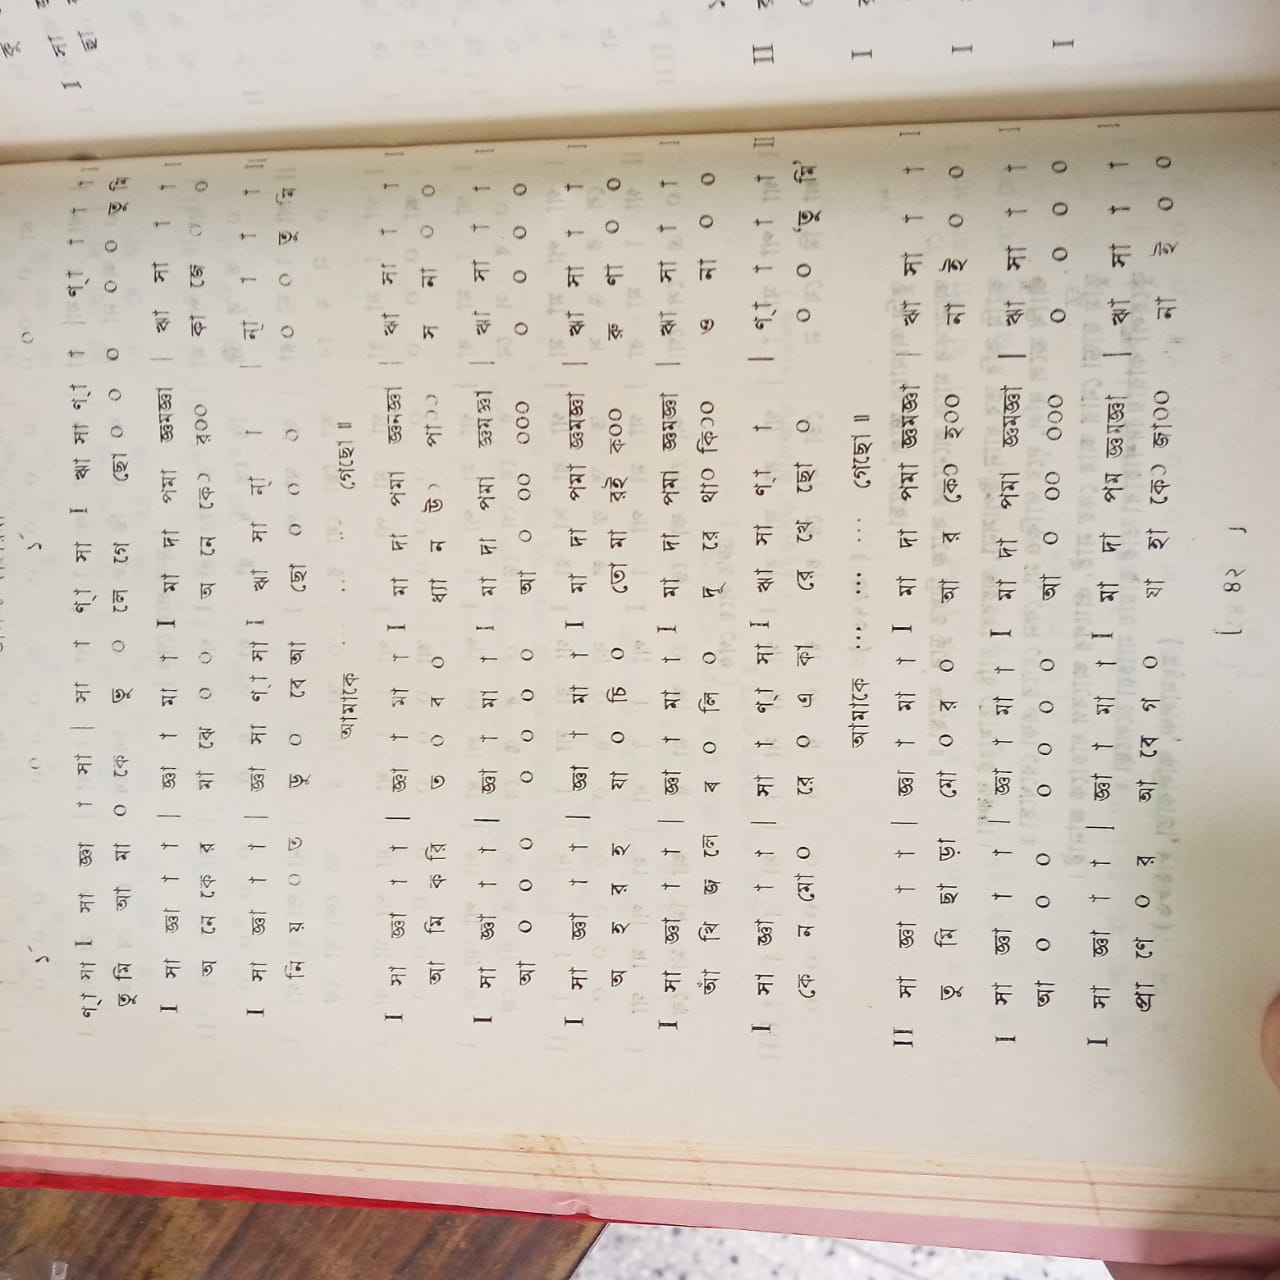 ণ্‌া সা I সা জ্ঞা । সা | সা । ণ্‌া সা I ঋা সা ণ্‌া । ণ্‌া । । ।
তু মি আ মা ০ কে ভু ০ লে গে ছো ০ ০ ০ ০ ০ তু মি
I সা জ্ঞা । । | জ্ঞা । মা । I মা দা পমা জ্ঞমজ্ঞা | ঋা সা । । I
অ নে কে র মা ঝে ০ ০ অ নে কে০ র০০ কা জে ০ ০
I সা জ্ঞা । । | জ্ঞা সা ণ্‌া সা I ঋা সা ন্‌া । | ন্‌া । । । II
নি য় ০ ত ডু ০ বে আ ছো ০ ০ ০ ০ ০ তু মি
আমাকে ... ... গেছো ॥
I সা জ্ঞা । । | জ্ঞা । মা । I মা দা পমা জ্ঞমজ্ঞা | ঋা সা । । I
আ মি ক রি ত ০ ব ০ ধ্যা ন উ০ পা০০ স না ০ ০
I সা জ্ঞা । । | জ্ঞা । মা । I মা দা পমা জ্ঞমজ্ঞা | ঋা সা । । I
আ ০ ০ ০ ০ ০ ০ ০ আ ০ ০০ ০০০ ০ ০ ০ ০
I সা জ্ঞা । । | জ্ঞা । মা । I মা দা পমা জ্ঞমজ্ঞা | ঋা সা । । I
অ হ র হ যা ০ চি ০ তো মা রই ক০০ রু ণা ০ ০
I সা জ্ঞা । । | জ্ঞা । মা । I মা দা পমা জ্ঞমজ্ঞা | ঋা সা । । I
আঁ খি জ লে ব ০ লি ০ দূ রে থা০ কি০০ ও না ০ ০
I সা জ্ঞা । । | সা । ণ্‌া সা I ঋা সা ণ্‌া । | ণ্‌া । । । II
কে ন মো ০ রে ০ এ কা রে খে ছো ০ ০ ০ 'তু মি'
আমাকে ... ... ... গেছো ॥
II সা জ্ঞা । । | জ্ঞা । মা । I মা দা পমা জ্ঞমজ্ঞা | ঋা সা । । I
তু মি ছা ড়া মো ০ র ০ আ র কে০ হ০০ না ই ০ ০
I সা জ্ঞা । । | জ্ঞা । মা । I মা দা পমা জ্ঞমজ্ঞা | ঋা সা । । I
আ ০ ০ ০ ০ ০ ০ ০ আ ০ ০০ ০০০ ০ ০ ০ ০
I সা জ্ঞা । । | জ্ঞা । মা । I মা দা পম জ্ঞমজ্ঞা | ঋা সা । । I
প্রা ণে ০ র আ বে গ ০ যা হা কে০ জা০০ না ই ০ ০
[ ৪২ ]